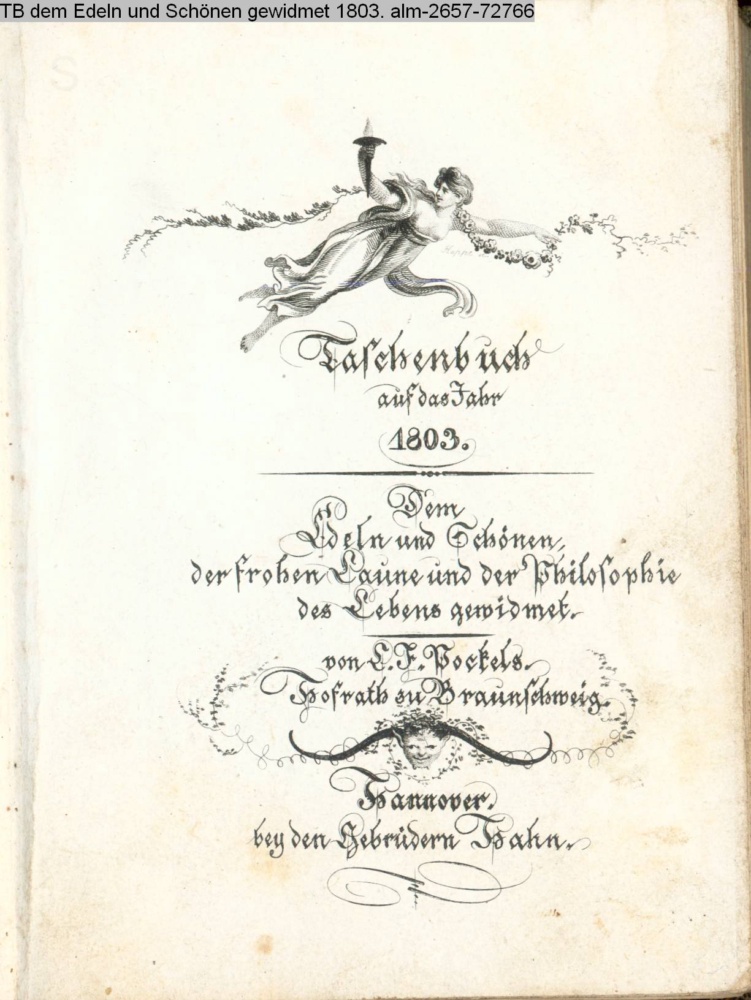 TB dem Edeln und Schönen gewidmet 1803. alm-2657-72766
Taschenbuch
auf das Jahr
1803.
Dem
Edeln und Schönen,
der frohen Laune und der Philosophie
des Lebens gewidmet.
von C. F. Pockels.
Hofrath zu Braunschweig.
Hannover.
bey den Gebrüdern Hahn.